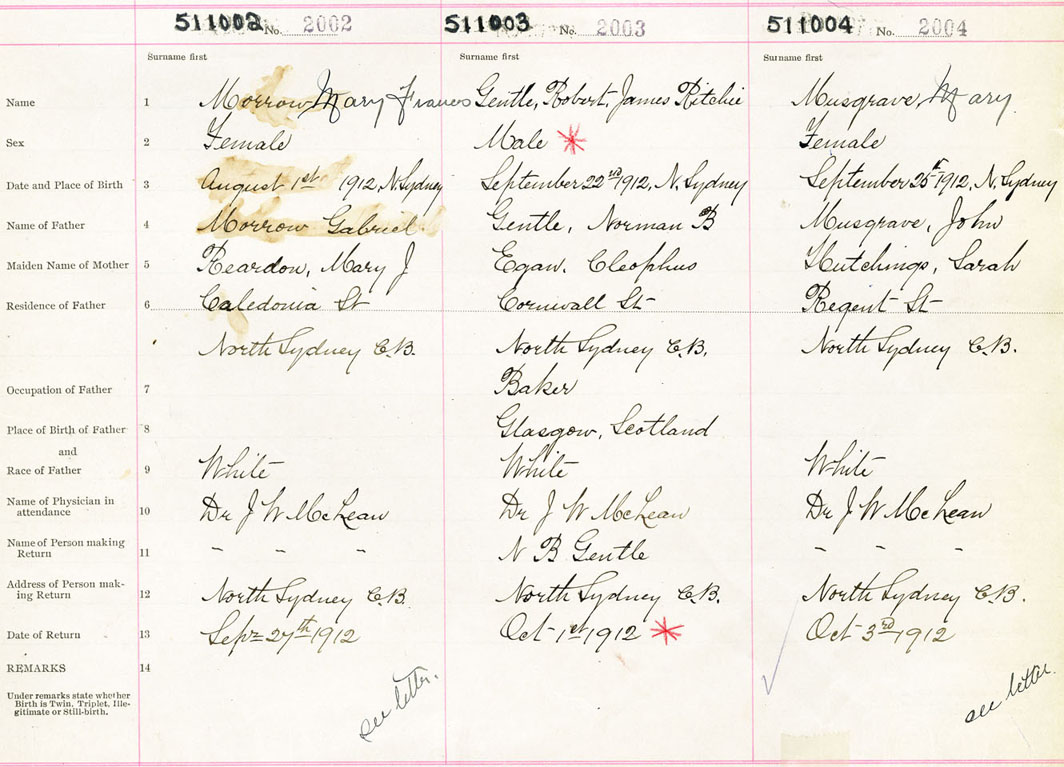 511002 No. 2002 511003 No. 2003 511004 No. 2004
Surname first Surname first Surname first
Name 1 Morrow Mary Frances Gentle, Robert, James Ritchie Musgrave, Mary
Sex 2 Female Male * Female
Date and Place of Birth 3 August 1st 1912, N. Sydney September 22nd 1912, N. Sydney September 25th 1912, N. Sydney
Name of Father 4 Morrow Gabriel Gentle, Norman B Musgrave, John
Maiden Name of Mother 5 Reardon, Mary J Egan, Cleophus Hutchings, Sarah
Residence of Father 6 Caledonia St Cornwall St Regent St
North Sydney C.B. North Sydney C.B. North Sydney C.B.
Occupation of Father 7 Baker
Place of Birth of Father 8 Glasgow, Scotland
and
Race of Father 9 White White White
Name of Physician in
attendance 10 Dr J W McLean Dr J W McLean Dr J W McLean
Name of Person making
Return 11 " " " N B Gentle " " "
Address of Person mak-
ing Return 12 North Sydney C.B. North Sydney C.B. North Sydney C.B.
Date of Return 13 Sept 27th 1912 Oct 1st 1912 * Oct 3rd 1912
REMARKS 14
Under remarks state whether
Birth is Twin, Triplet, Ille-
gitimate or Still-birth.
see letter. see letter.